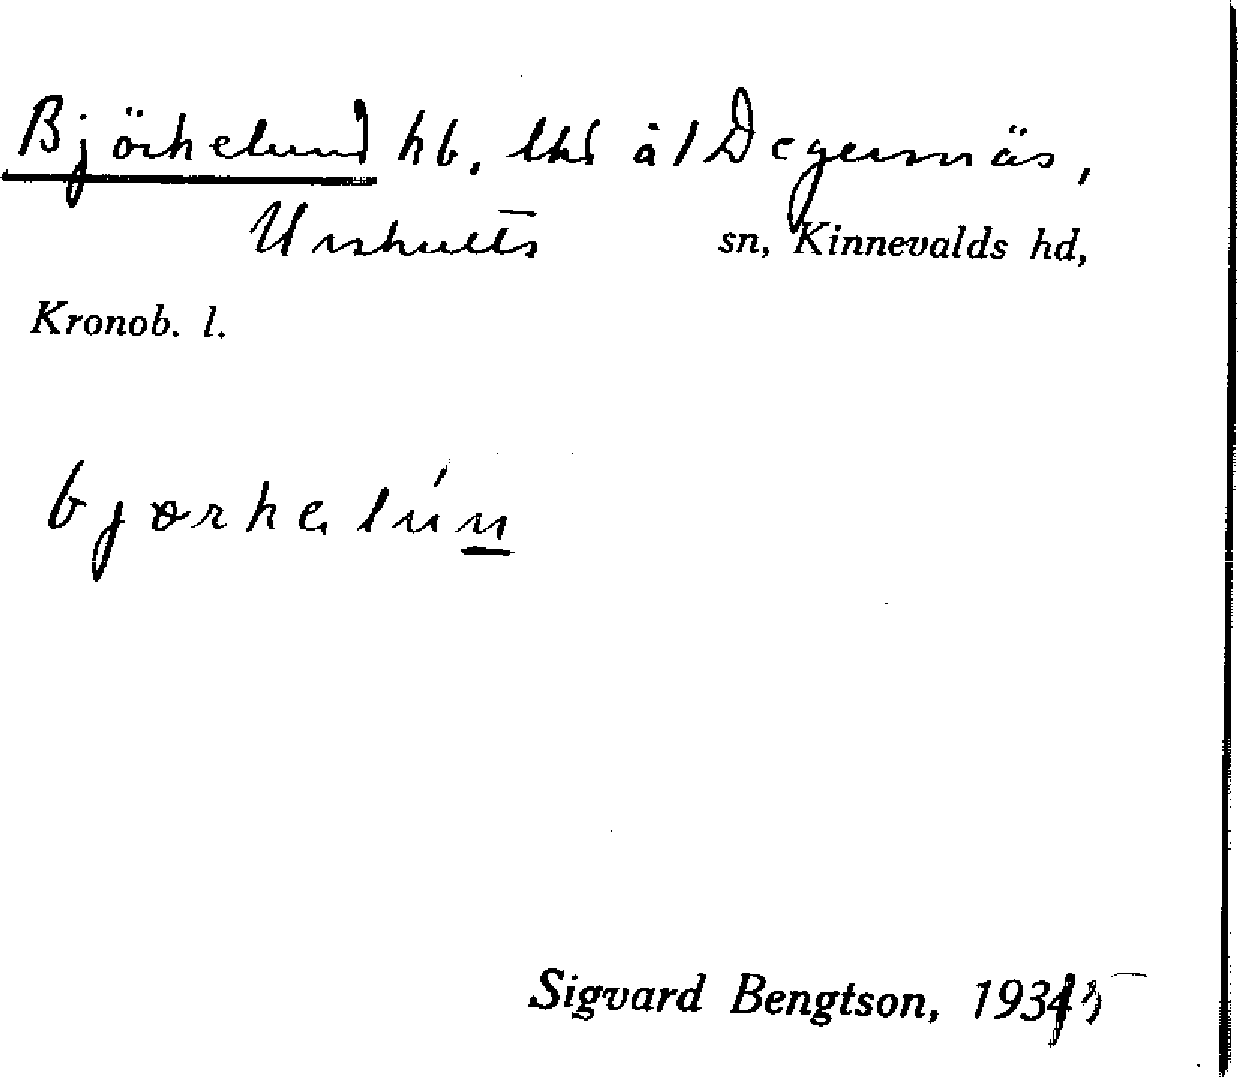 Björkelund hb, lhs å 1 Degernäs,
Urshults sn, Kinnevalds hd,
Kronob. l.
bjørkelún
Sigvard Bengtson, 1935